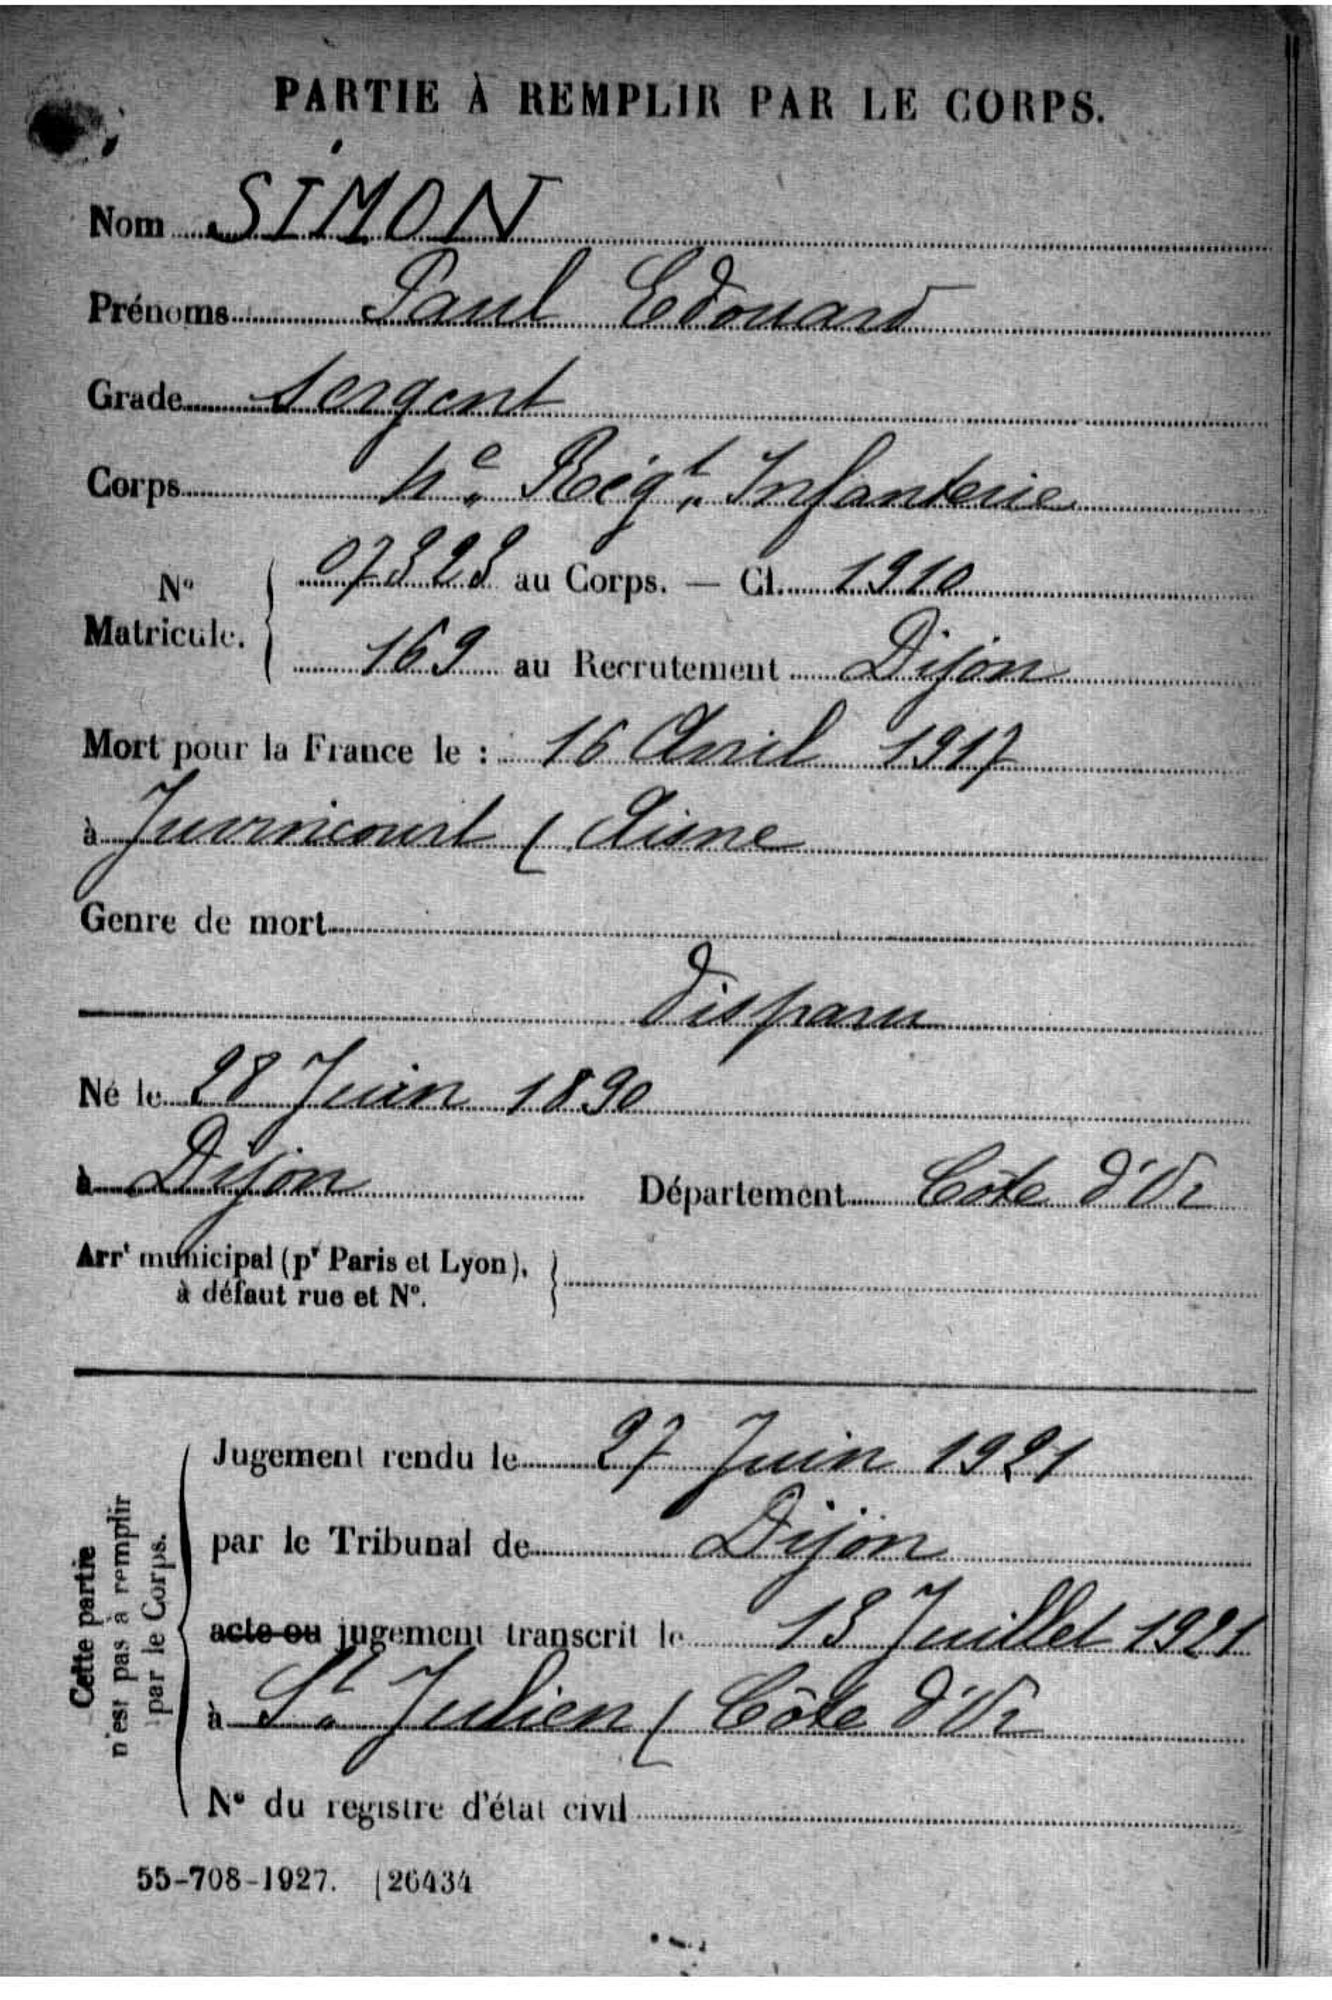 PARTIE À REMPLIR PAR LE CORPS.
Nom SIMON
Prénoms Paul Edouard
Grade Sergent
Corps 4e Régt Infanterie
No Matricule. 07323 au Corps. — Cl. 1910
169 au Recrutement Dijon
Mort pour la France le : 16 Avril 1917
à Juvincourt ( Aisne
Genre de mort
Disparu
Né le 28 Juin 1890
à Dijon Département Côte d'Or
Arrt municipal (pr Paris et Lyon),
à défaut rue et No.
Cette partie
n'est pas à remplir
par le Corps.
Jugement rendu le 27 Juin 1921
par le Tribunal de Dijon
acte ou jugement transcrit le 13 Juillet 1921
à St Julien ( Côte d'Or
No du registre d'état civil
55-708-1927. [26434